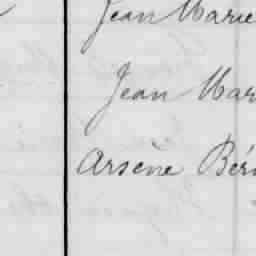 Jean Marie
Jean Mar
Arsène Bér